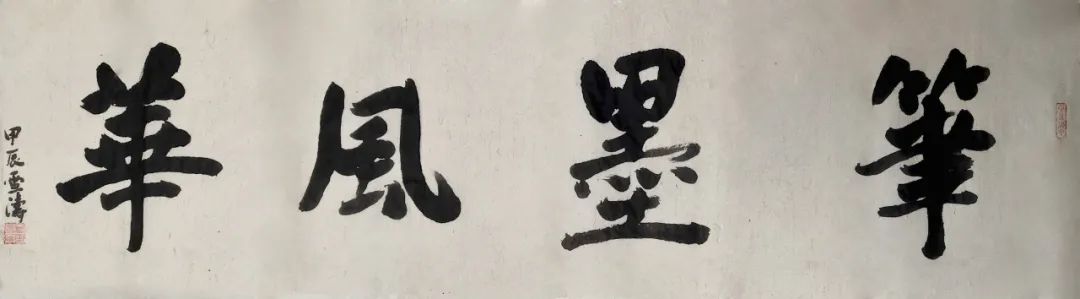 筆墨風華
甲辰雲濤